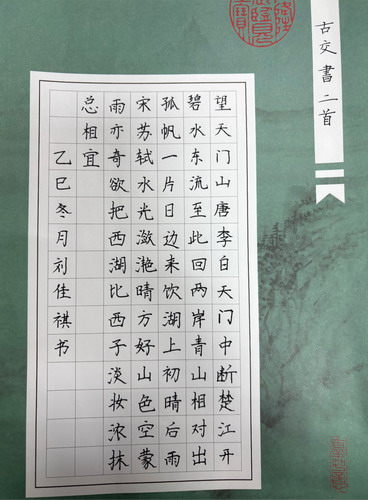 古交書二首
望天门山唐李白天门中断楚江开
碧水东流至此回两岸青山相对出
孤帆一片日边来饮湖上初晴后雨
宋苏轼水光潋滟晴方好山色空蒙
雨亦奇欲把西湖比西子淡妆浓抹
总相宜
乙巳冬月刘佳祺书